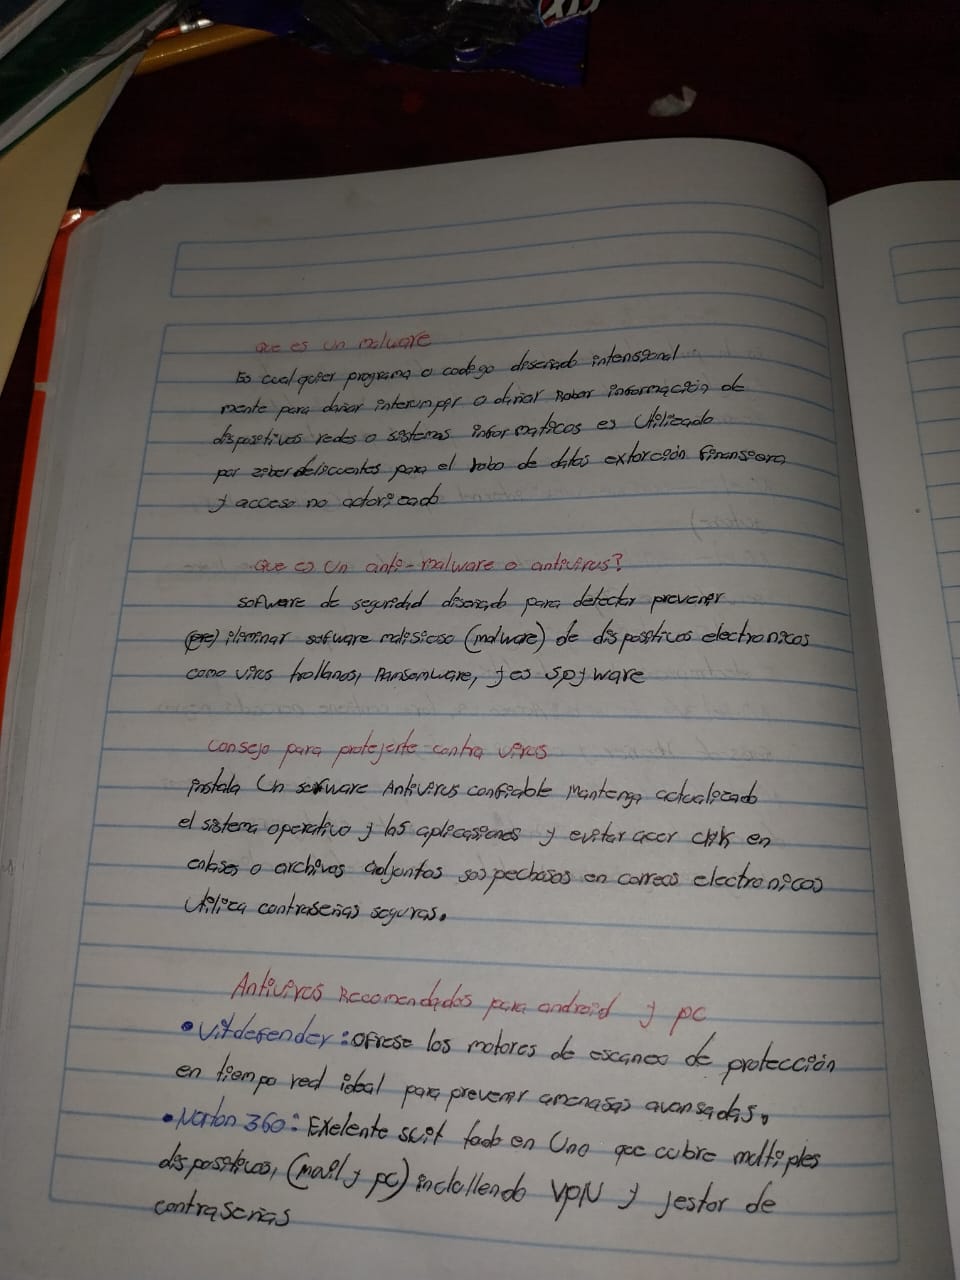 que es un malware
Es cualquier programa o codego diseñado intensional
mente para dañar interumpir o dañar Robar información de
dispositivos redes o sistemas informaticos es Utilizado
por ziberdelicuentes para el robo de datos extorción Finansiera
y acceso no actorizado
que es un anti-malware o antivirus?
software de seguridad diseñado para detectar prevener
(pre) iliminar software malisioso (malware) de dispositicos electronicos
como virus trollanos, Ransomware, y es spyware
consejo para protejerte contra virus
instala Un software Antivirus confiable Mantenga actualizado
el sistema operativo y las aplicasiones y evitar acer clik en
enlases o archivos adjuntos sospechosos en correos electronicos
Utiliza contraseñas seguras.
Antivirus Recomendados para android y pc
• Vitdefender: ofrese los motores de escaneo de protección
en tiempo red ideal para prevenir amenasas avansadas.
• Norton 360: Exelente suit todo en Uno que cubre multiples
dispositicos, (mail y pc) inclullendo VPN y jestor de
contraseñas